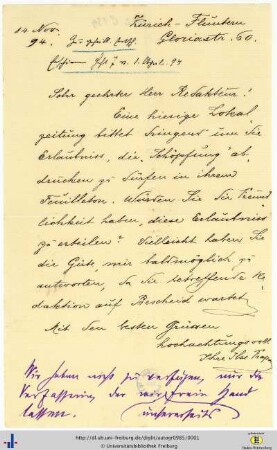 14 Nov. Zürich-Fluntern
94. Gloriastr. 60.
1. April. 94
Sehr geehrter Herr Redakteur!
Eine hiesige Lokal
zeitung bittet dringend um die
Erlaubniss, die „Schöpfung" ab
drucken zu dürfen in ihrem
Feuilleton. Würden Sie die Freund
lichkeit haben, diese Erlaubniss
zu erteilen? Vielleicht haben Sie
die Güte, mir baldmöglich zu
antworten, da die betreffende Re
daktion auf Bescheid wartet.
Mit den besten Grüssen
hochachtungsvoll
Wir haben nicht zu verfügen, nur die
Verfasserin, der wir freie Hand
lassen. unsererseits
http://dl.ub.uni-freiburg.de/diglit/autograf0985/0001